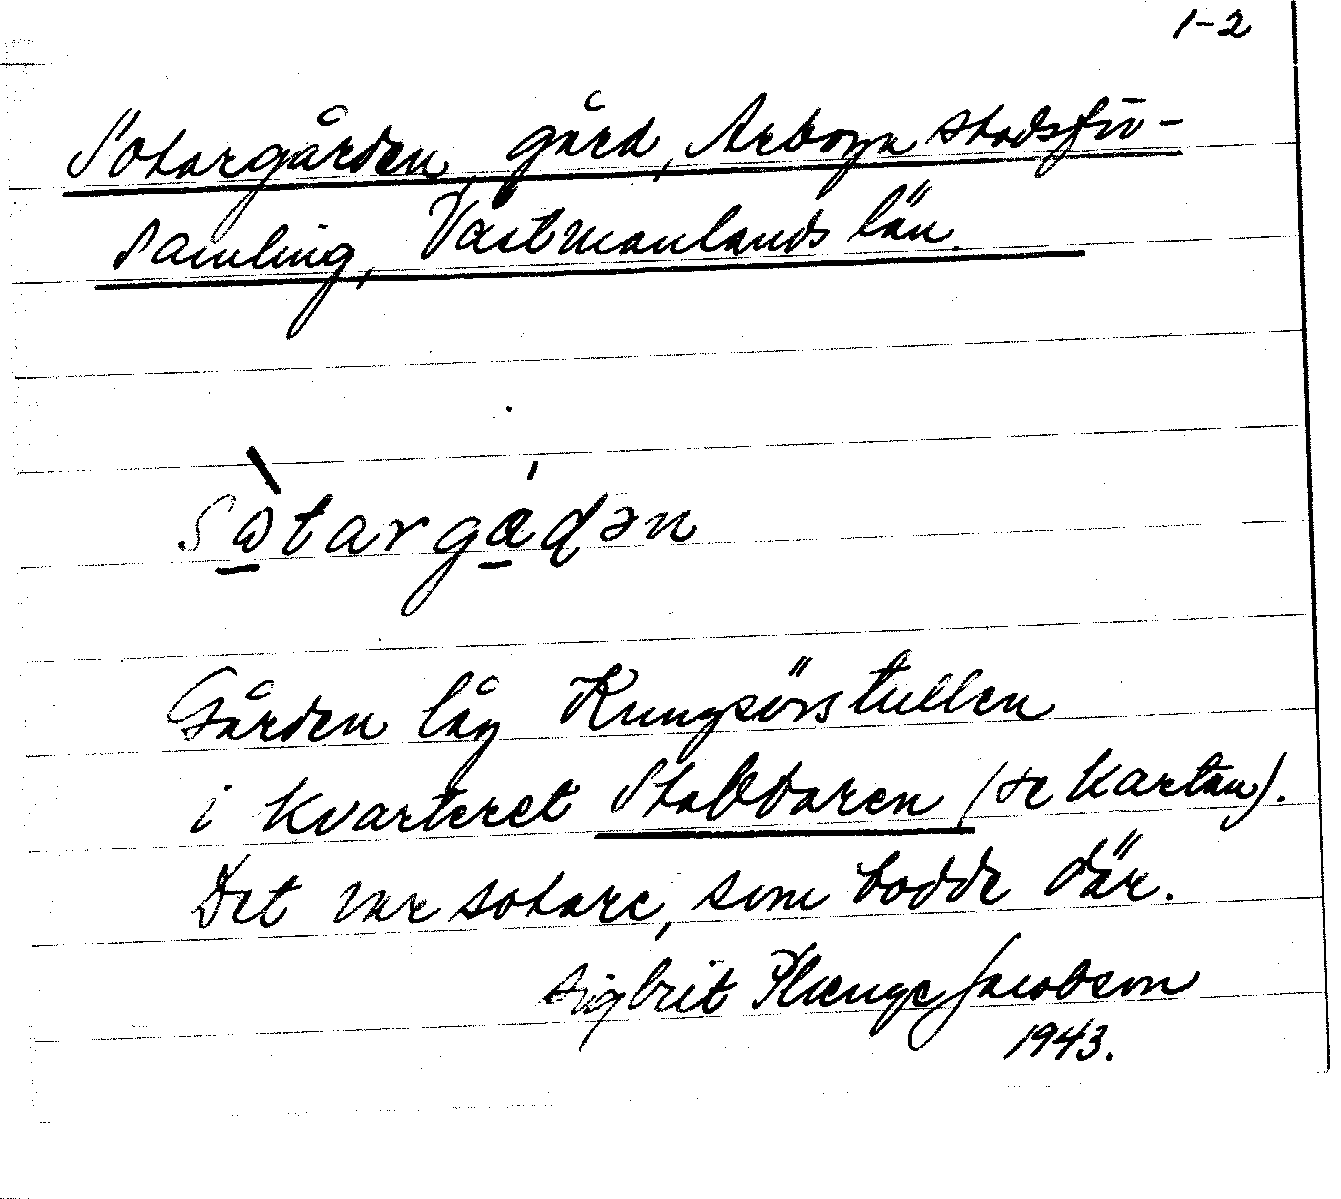 1-2
Sotargården, gård, Arboga stadsför-
samling, Västmanlands län.
Sòtargáɖən
Gården låg Kungsörstullen
i kvarteret Stabbaren (se kartan).
Det var sotare, som bodde där.
Sigbrit Plænge Jacobson
1943.